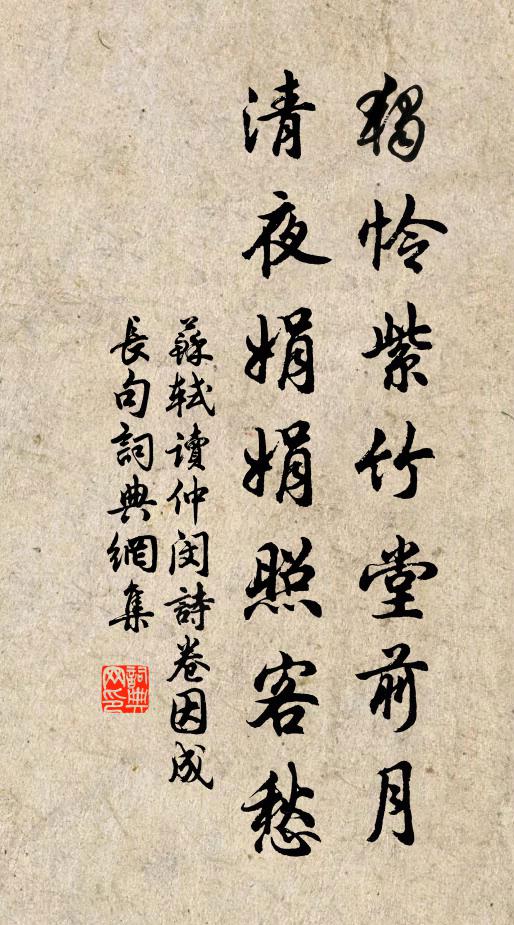 獨怜紫竹堂前月
清夜娟娟照客愁
蘇軾讀仲閔詩卷因成
長句詞典網集
詞典网印